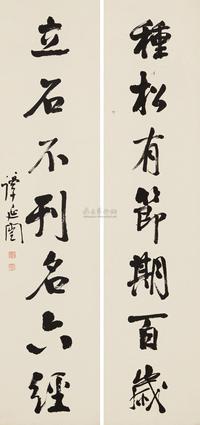 種松有節期百歲
立石不刊名六經
譚延闓